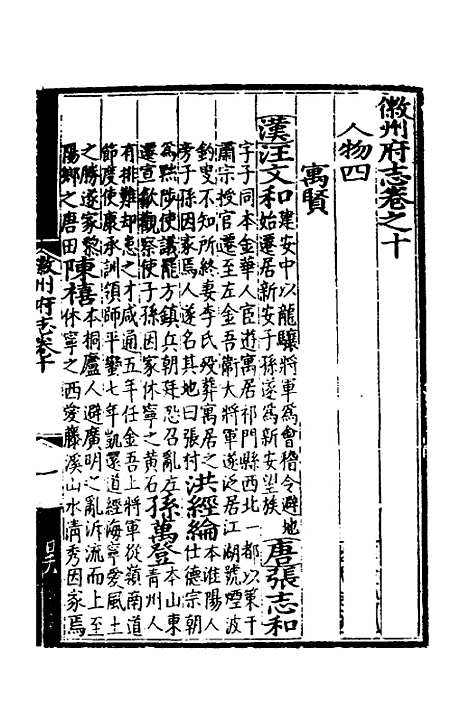 徽州府志卷之十
人物四
寓賢
漢汪文和建安中以龍驤將軍為會稽令避地
始遷居新安子孫遂為新安望族唐張志和
字子同本金華人宦遊寓居祁門縣西北一都以策干
肅宗授官遷至左金吾衛大將軍遂泛居江湖號煙波
釣叟不知所終妻李氏歿葬寓居之
旁子孫因家焉人遂名其地曰張村洪經綸本淮陽人
仕德宗朝
為黜陟使議罷方鎮兵朝廷恐召亂左
遷宣歙觀察使子孫因家休寧之黃石孫萬登本山東
青州人
有排難却患之才咸通五年任金吾上將軍從嶺南道
節度使康承訓領師平蠻七年凱還道經海寧愛風土
之勝遂家黎
陽鄉之唐田陳禧本桐廬人避廣明之亂泝流而上至
休寧之西愛藤溪山水清秀因家焉
徽州府志卷十
一